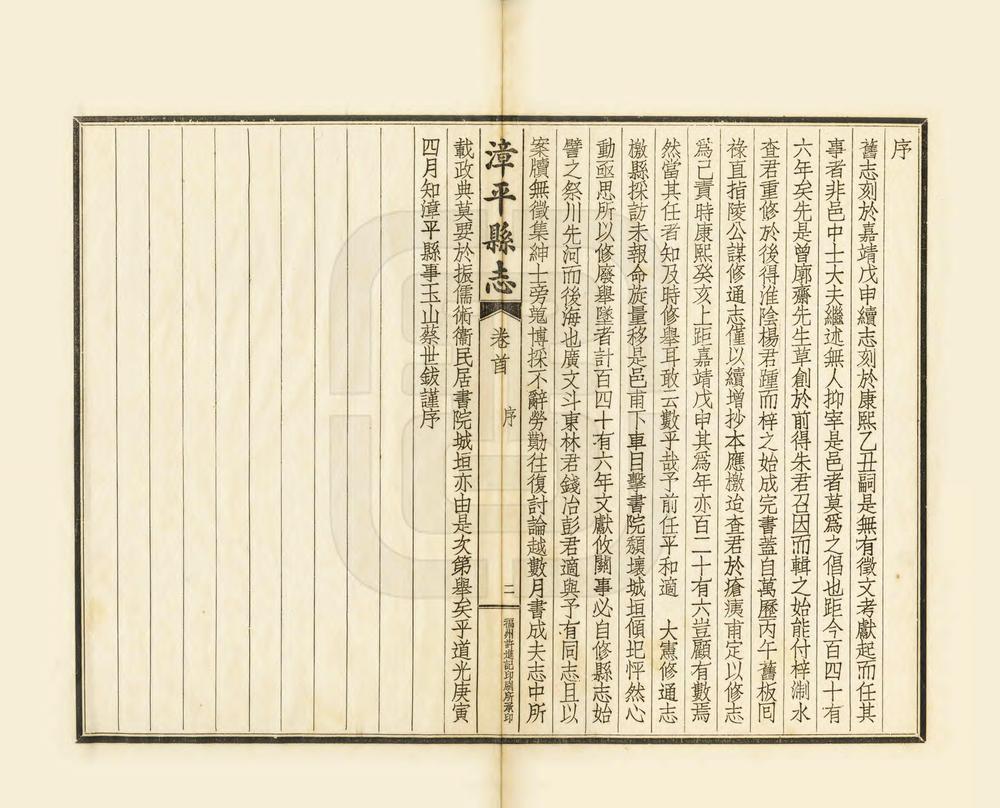 序
舊志刻於嘉靖戊申續志刻於康熙乙丑嗣是無有徵文考獻起而任其
事者非邑中士大夫繼述無人抑宰是邑者莫爲之倡也距今百四十有
六年矣先是曾廓齋先生草創於前得朱君召因而輯之始能付梓淛水
查君重修於後得淮陰楊君踵而梓之始成完書蓋自萬歷丙午舊板回
祿直指陵公謀修通志僅以續增抄本應檄迨查君於瘡痍甫定以修志
爲己責時康熙癸亥上距嘉靖戊申其爲年亦百二十有六豈顧有數焉
然當其任者知及時修舉耳敢云數乎哉予前任平和適 大憲修通志
檄縣採訪未報命旋量移是邑甫下車目擊書院頹壞城垣傾圮怦然心
動亟思所以修廢舉墜者計百四十有六年文獻攸關事必自修縣志始
譬之祭川先河而後海也廣文斗東林君錢冶彭君適與予有同志且以
案牘無徵集紳士旁蒐博採不辭勞勩往復討論越數月書成夫志中所
漳平縣志
卷首
序
二
福州許進記印刷所承印
載政典莫要於振儒術衞民居書院城垣亦由是次第舉矣乎道光庚寅
四月知漳平縣事玉山蔡世鈸謹序